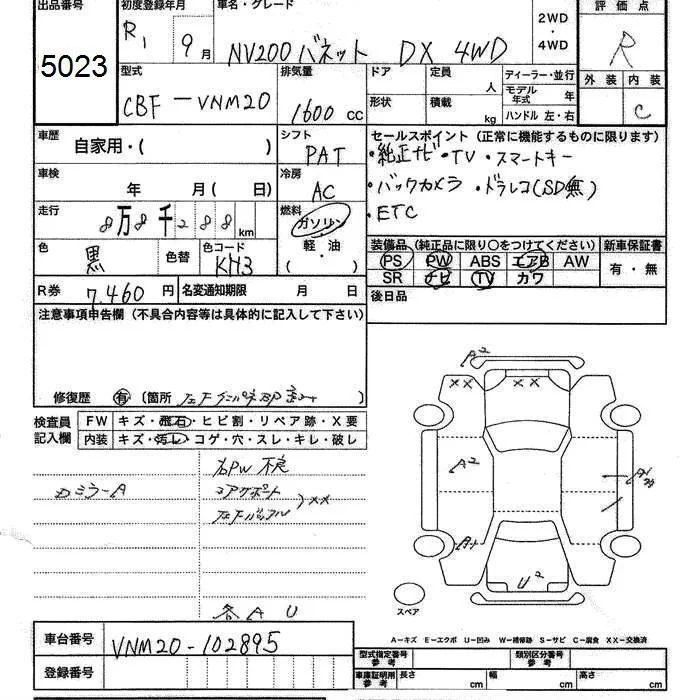 出品番号 初度登録年月 車名・グレード 2WD・4WD 評価点
5023 R1 9月 NV200バネット DX 4WD R
型式 排気量 ドア 定員 人 ディーラー・並行 外装 内装
CBF-VNM20 1600 cc 形状 積載 kg モデル年式 年 ハンドル 左・右 C
車歴 自家用・( ) シフト PAT セールスポイント(正常に機能するものに限ります)
・純正ナビ・TV・スマートキー
車検 年 月( 日) 冷房 AC ・バックカメラ・ドラレコ(SD無)
走行 8万8千288km 燃料 ガソリン 軽・油 ( ) ・ETC
色 黒 色替 色コード KH3 装備品(純正品に限り○をつけてください) 新車保証書
PS PW ABS エアB AW 有・無
SR ナビ TV カワ
R券 7,460円 名変通知期限 月 日 後日品
注意事項申告欄(不具合内容等は具体的に記入して下さい)
修復歴 有 (箇所
検査員記入欄 FW キズ・飛石・ヒビ割・リペア跡・X要
内装 キズ・汚レ・コゲ・穴・スレ・キレ・破レ
右PW不良
ミラーA コアサポート
XX
各AU
A2
XX XX
A2
A1
U2
スペア
A-キズ E-エクボ U-凹み W-補修跡 S-サビ C-腐食 XX-交換済
車台番号 VNM20-102895
型式指定番号 参考 類別区分番号 参考
登録番号 車庫証明用 参考 長さ cm 幅 cm 高さ cm